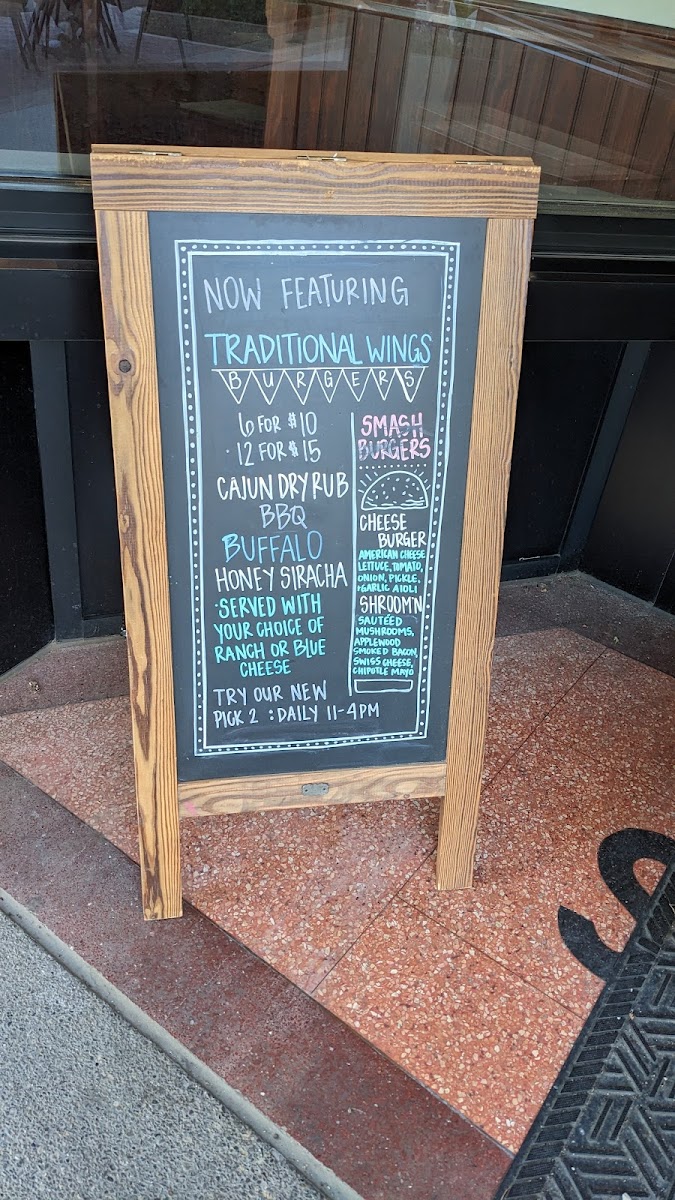 NOW FEATURING
TRADITIONAL WINGS
BURGERS
6 FOR $10
· 12 FOR $15
CAJUN DRY RUB
BBQ
BUFFALO
HONEY SIRACHA
·SERVED WITH
YOUR CHOICE OF
RANCH OR BLUE
CHEESE
SMASH
BURGERS
CHEESE
BURGER
AMERICAN CHEESE
LETTUCE, TOMATO,
ONION, PICKLE,
+GARLIC AIOLI
SHROOM'N
SAUTÉED
MUSHROOMS,
APPLEWOOD
SMOKED BACON,
SWISS CHEESE,
CHIPOTLE MAYO
TRY OUR NEW
PICK 2 : DAILY 11-4PM